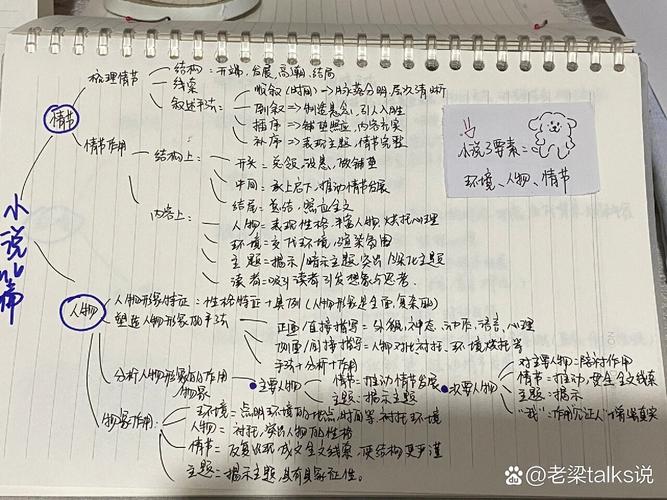 小说心痛
情节
梳理情节
结构：开端、发展、高潮、结局
线索
叙述手法：
顺叙（时间）⇒段落分明，层次清晰
倒叙⇒制造悬念，引人入胜
插序⇒铺垫照应，内容充实
补序⇒表现主题，情节完整
情节作用
结构上：
开头：总领，设悬，做铺垫
中间：承上启下，推动情节发展
结局：总结，照应全文
内容上：
人物：表现性格，丰富人物，烘托心理
环境：交代环境，渲染氛围
主题：揭示/暗示主题，突出/深化主题
读者：吸引读者，引发想象与思考
小说3要素：
环境、人物、情节
人物
人物形象特征：性格特征+具例（人物形象是全面，复杂的）
塑造人物形象的手法
正面/直接描写：外貌，神态，动作，语言，心理
侧面/间接描写：人物对比衬托、环境烘托等
手法+分析+作用
分析人物形象的作用
主要人物
情节：推动情节发展
主题：揭示主题
次要人物
对主要人物：陪衬作用
情节：推动，贯全文线索
主题：揭示
"我"：作用"见证人"增强真实
物象
物象作用：
环境：点明环境的地点，时间等，衬托环境
人物：衬托，突出人物的性格
情节：反复出现，成文全文线索，使结构更严谨
主题：揭示主题，具有象征性。
@老梁talks说